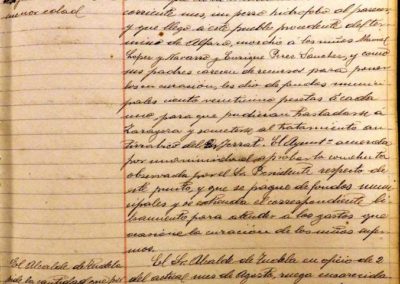 menor edad
corriente mes, un perro hidrofobo al parecer
y que llegó a este pueblo procedente del tér-
mino de Alfaro, mordió a los niños Manuel
Lopez y Navarro y Enrique Perez Sanchez, y como
sus padres carecen de recursos para poner-
los en curacion, les dio de fondos munici-
pales veinticinco pesetas á cada
uno, para que pudieran trasladarse a
Zaragoza y someterse al tratamiento an-
tirrabico del Dr. Ferrat. El Ayunt.º acuerda
por unanimidad aprobar la conducta
observada por el Sr. Presidente respecto de
este punto, y que se pague de fondos muni-
cipales y se extienda el correspondiente li-
bramiento, para atender á los gastos que
ocasione la curacion de los niños enfer-
mos.
El Alcalde de Tudela
El Sr. Alcalde de Tudela en oficio de 2
del actual mes de Agosto, ruega encarecida